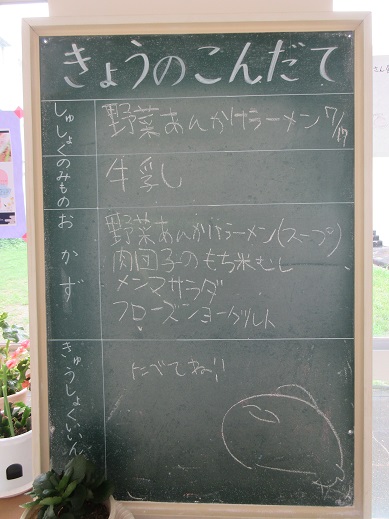 きょうのこんだて
しゅしょく
野菜あんかけラーメン 7/17
のみもの
牛乳
おかず
野菜あんかけラーメン(スープ)
肉団子のもち米むし
メンマサラダ
フローズンヨーグルト
きゅうしょくいん
たべてね!!